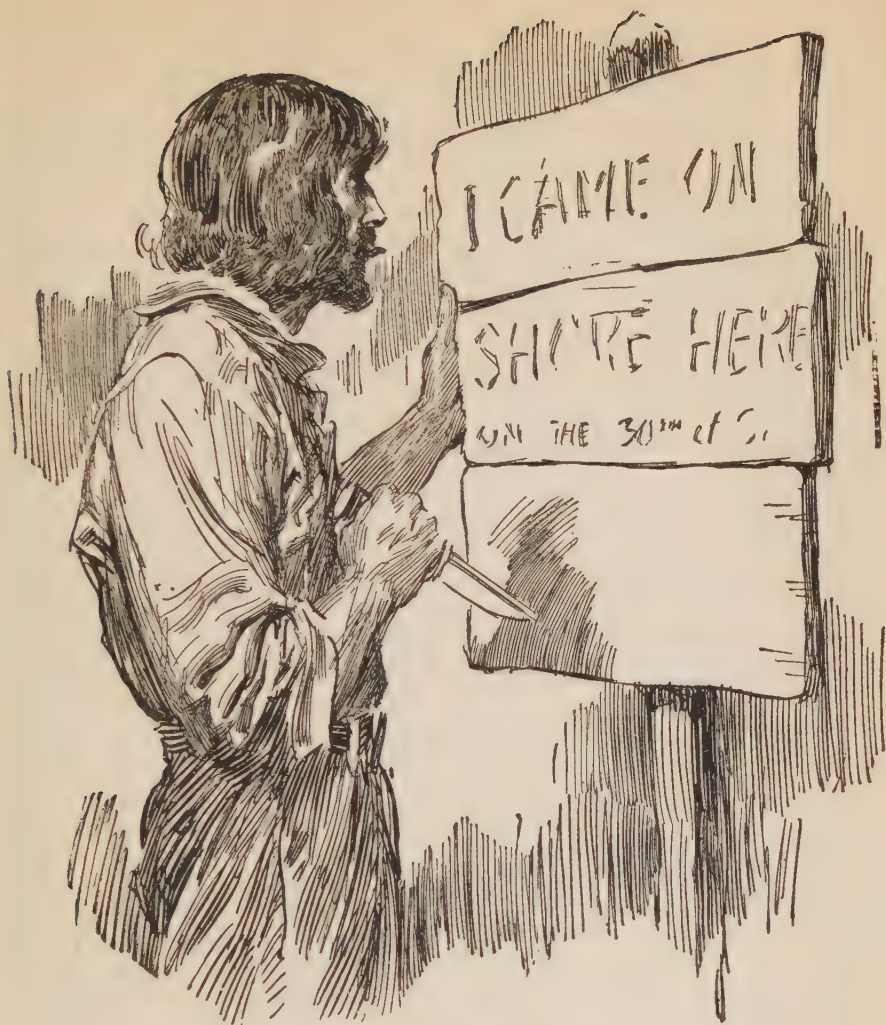 I CAME ON
SHORE HERE
ON THE 30TH of S